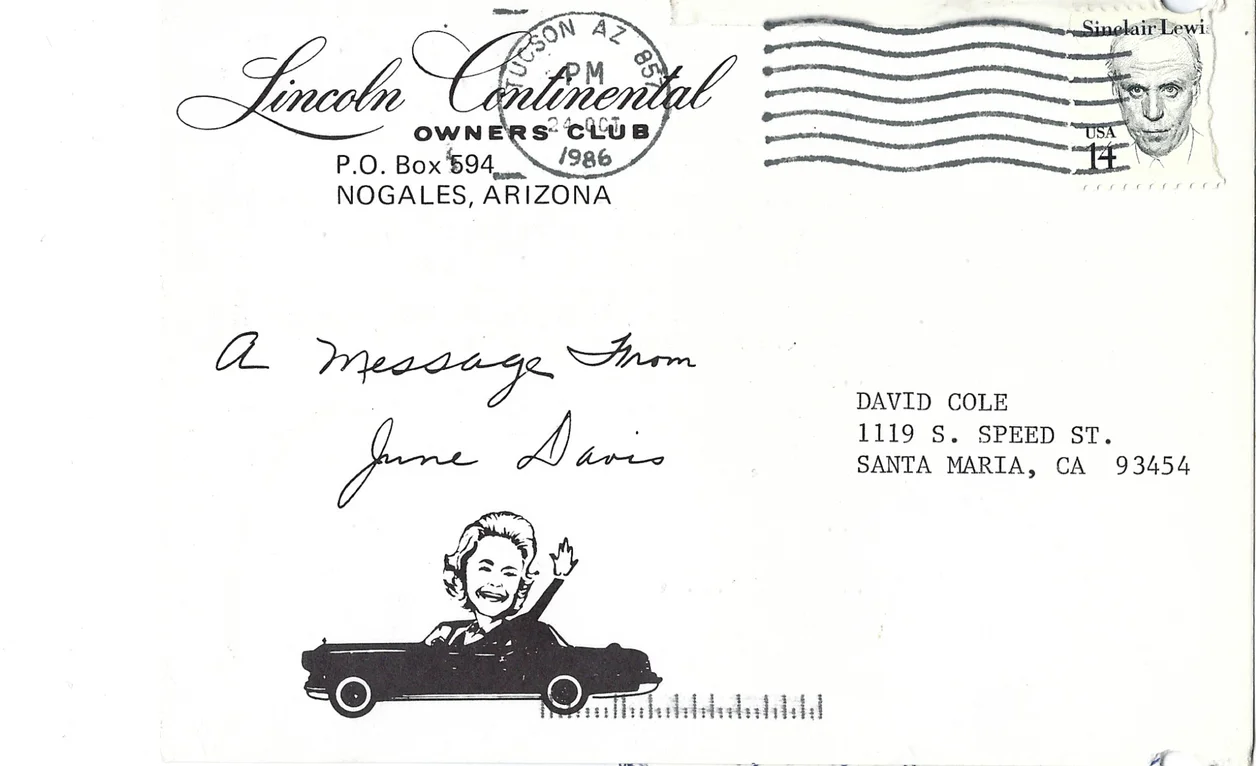 Lincoln Continental
OWNERS CLUB
P.O. Box 594
NOGALES, ARIZONA
TUCSON AZ
PM
24 OCT
1986
Sinclair Lewi
USA
14
A Message From
June Davis
DAVID COLE
1119 S. SPEED ST.
SANTA MARIA, CA 93454